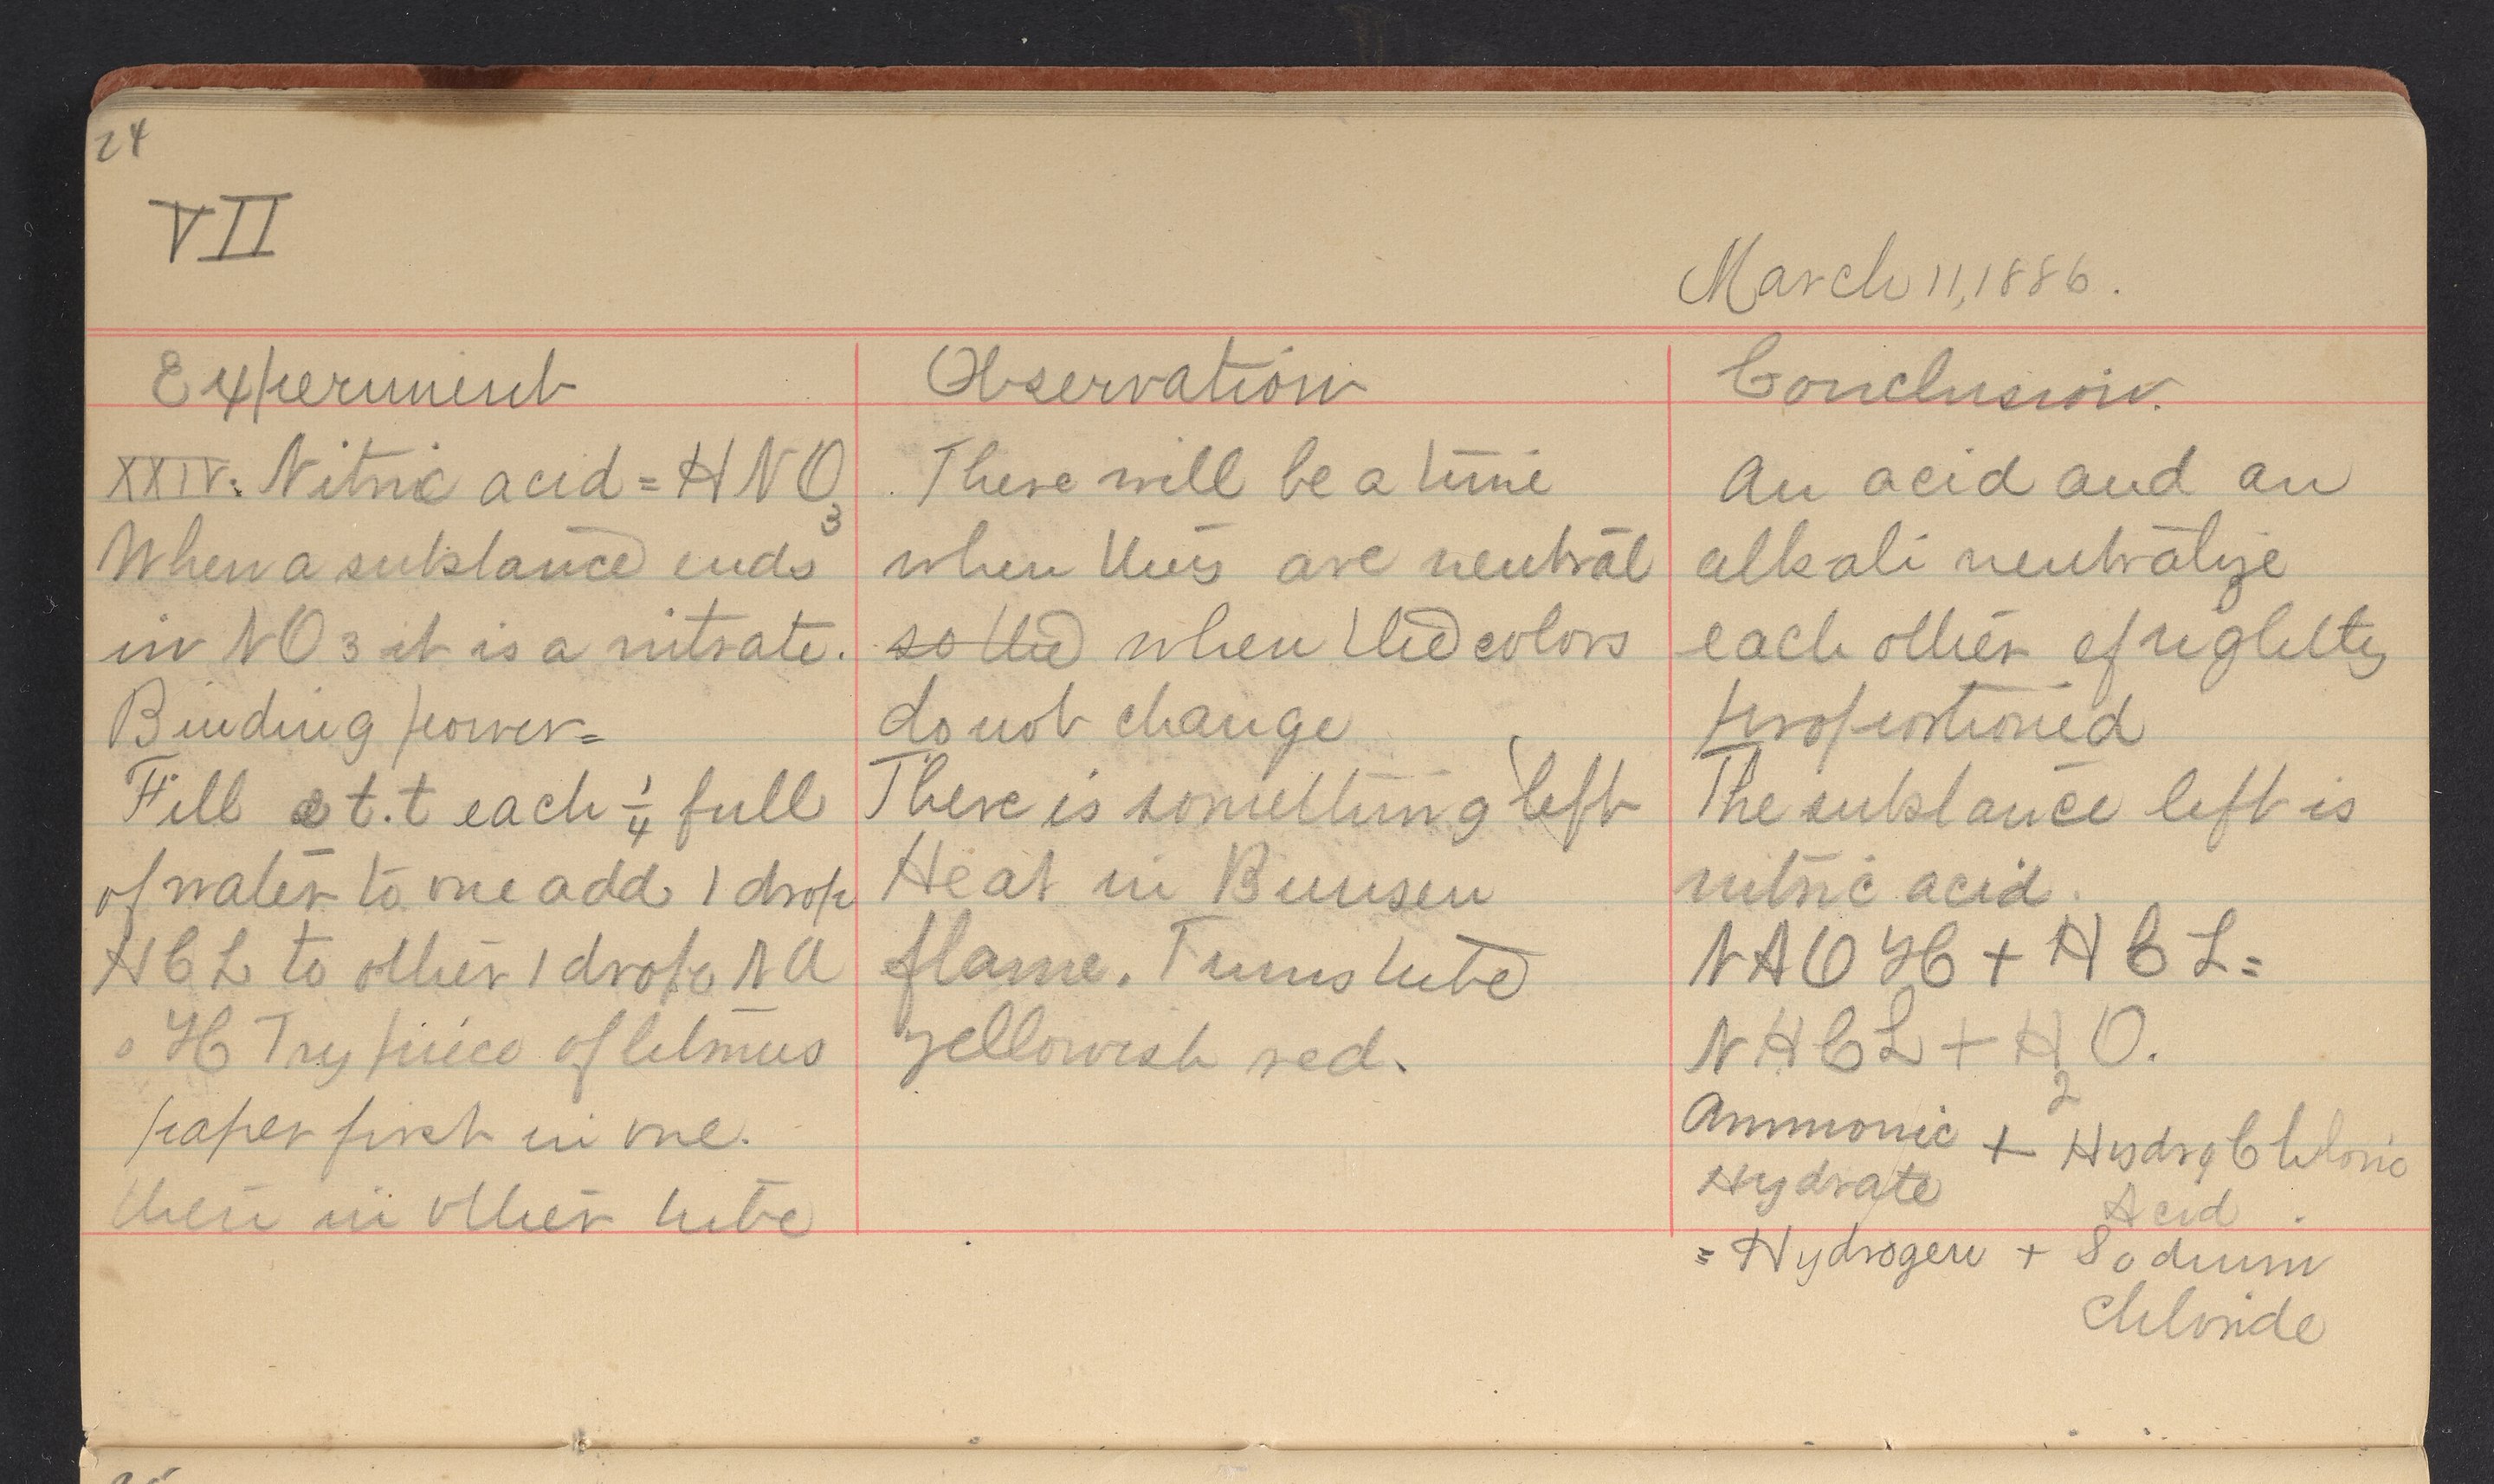 24
VII
March 11, 1886.
Experiment
XXIV. Nitric acid = HNO3
When a substance ends
in NO3 it is a nitrate.
Binding power =
Fill 2 t.t each 1/4 full
of water to one add 1 drop
HCL to other 1 drop NA
OH Try piece of litmus
paper first in one.
then in other tube
Observation
There will be a time
when they are neutral
so the when the colors
do not change
There is something left
Heat in Bunsen
flame. Turns tube
yellowish red.
Conclusion.
An acid and an
alkali neutralize
each other if rightly
proportioned
The substance left is
nitric acid.
NAOH + HCL =
NHCL + H2O.
Ammonic + HydroChloric
Hydrate Acid.
= Hydrogen + Sodium
Chloride